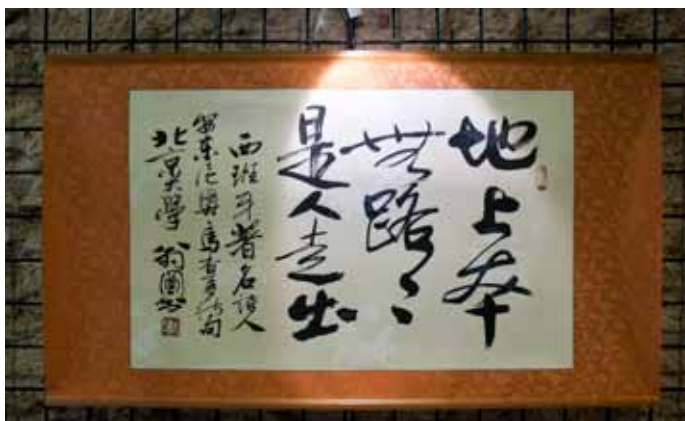 地上本
無路々
是人走出
西班牙著名詩人
安東尼奧馬查多詩句
北京大學